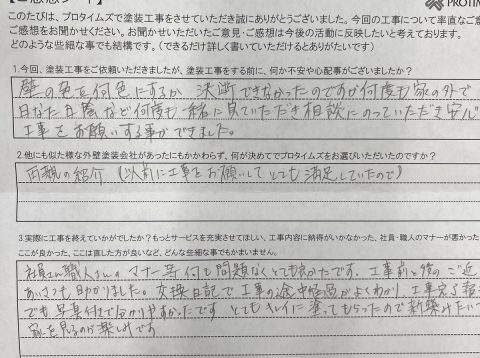 このたびは、プロタイムズで塗装工事をさせていただき誠にありがとうございました。今回の工事について率直なご意
ご感想をお聞かせください。お聞かせいただいたご意見・ご感想は今後の活動に反映したいと考えております。
どのような些細な事でも結構です。（できるだけ詳しく書いていただけるとありがたいです）
1.今回、塗装工事をご依頼いただきましたが、塗装工事をする前に、何か不安や心配事がございましたか？
壁の色を何色にするか 決断できなかったのですが何度も家の外で
日なた日陰など何度も一緒に見ていただき相談にのっていただき安心
工事をお願いする事ができました。
2.他にも似た様な外壁塗装会社があったにもかかわらず、何が決めてでプロタイムズをお選びいただいたのですか？
両親の紹介（以前に工事をお願いしてとても満足していたので）
3.実際に工事を終えていかがでしたか？もっとサービスを充実させてほしい、工事内容に納得がいかなかった、社員・職人のマナーが悪かった
ここが良かった、ここは直した方が良いなど、どんな些細な事でもかまいません。
社員さん職人さんのマナー等何も問題なくとても良かったです。工事前と後のご近
あいさつも助かりました。交換日記で工事の途中経過がよくわかり、工事完了報
でも写真付きで分かりやすかったです とてもキレイに塗ってもらったので新築みたい
家を見るのが楽しみです